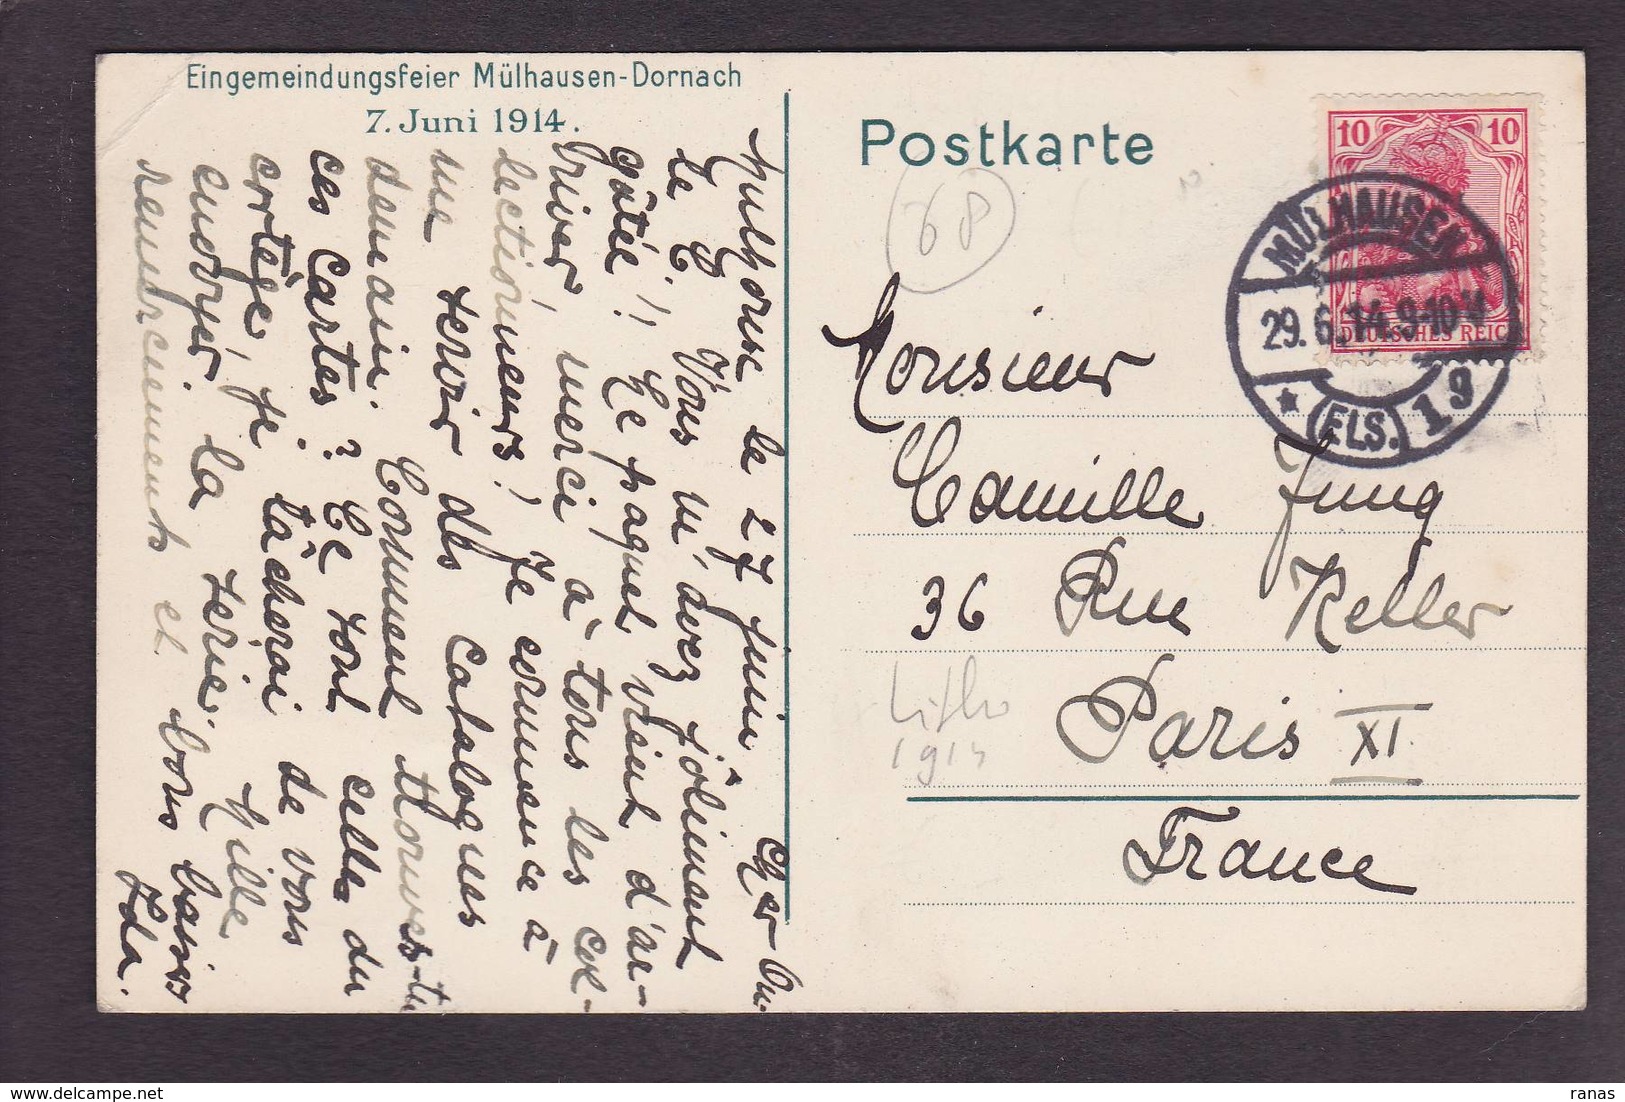 Eingemeindungsfeier Mülhausen-Dornach
7. Juni 1914.
Postkarte
10 10
DEUTSCHES REICH
MÜLHAUSEN
29. 6. 14. 9-10 V
* (ELS.) 1 g
68
Mulhouse le 27 juin Cher On-
cle C. Vous m'avez jôliment
gâtée!! Le paquet vient d'ar-
river, merci à tous les col-
lectionneurs! Je commence à
me revoir des catalogues
demain. Comment trouves-tu
ces cartes? Ce sont celles du
cortège, je tâcherai de vous
envoyer la série. Mille
remerciements et bons baisers
Ida.
Monsieur
Camille Jung
36 Rue Keller
Paris XI.
France
Litho
1914
ranas